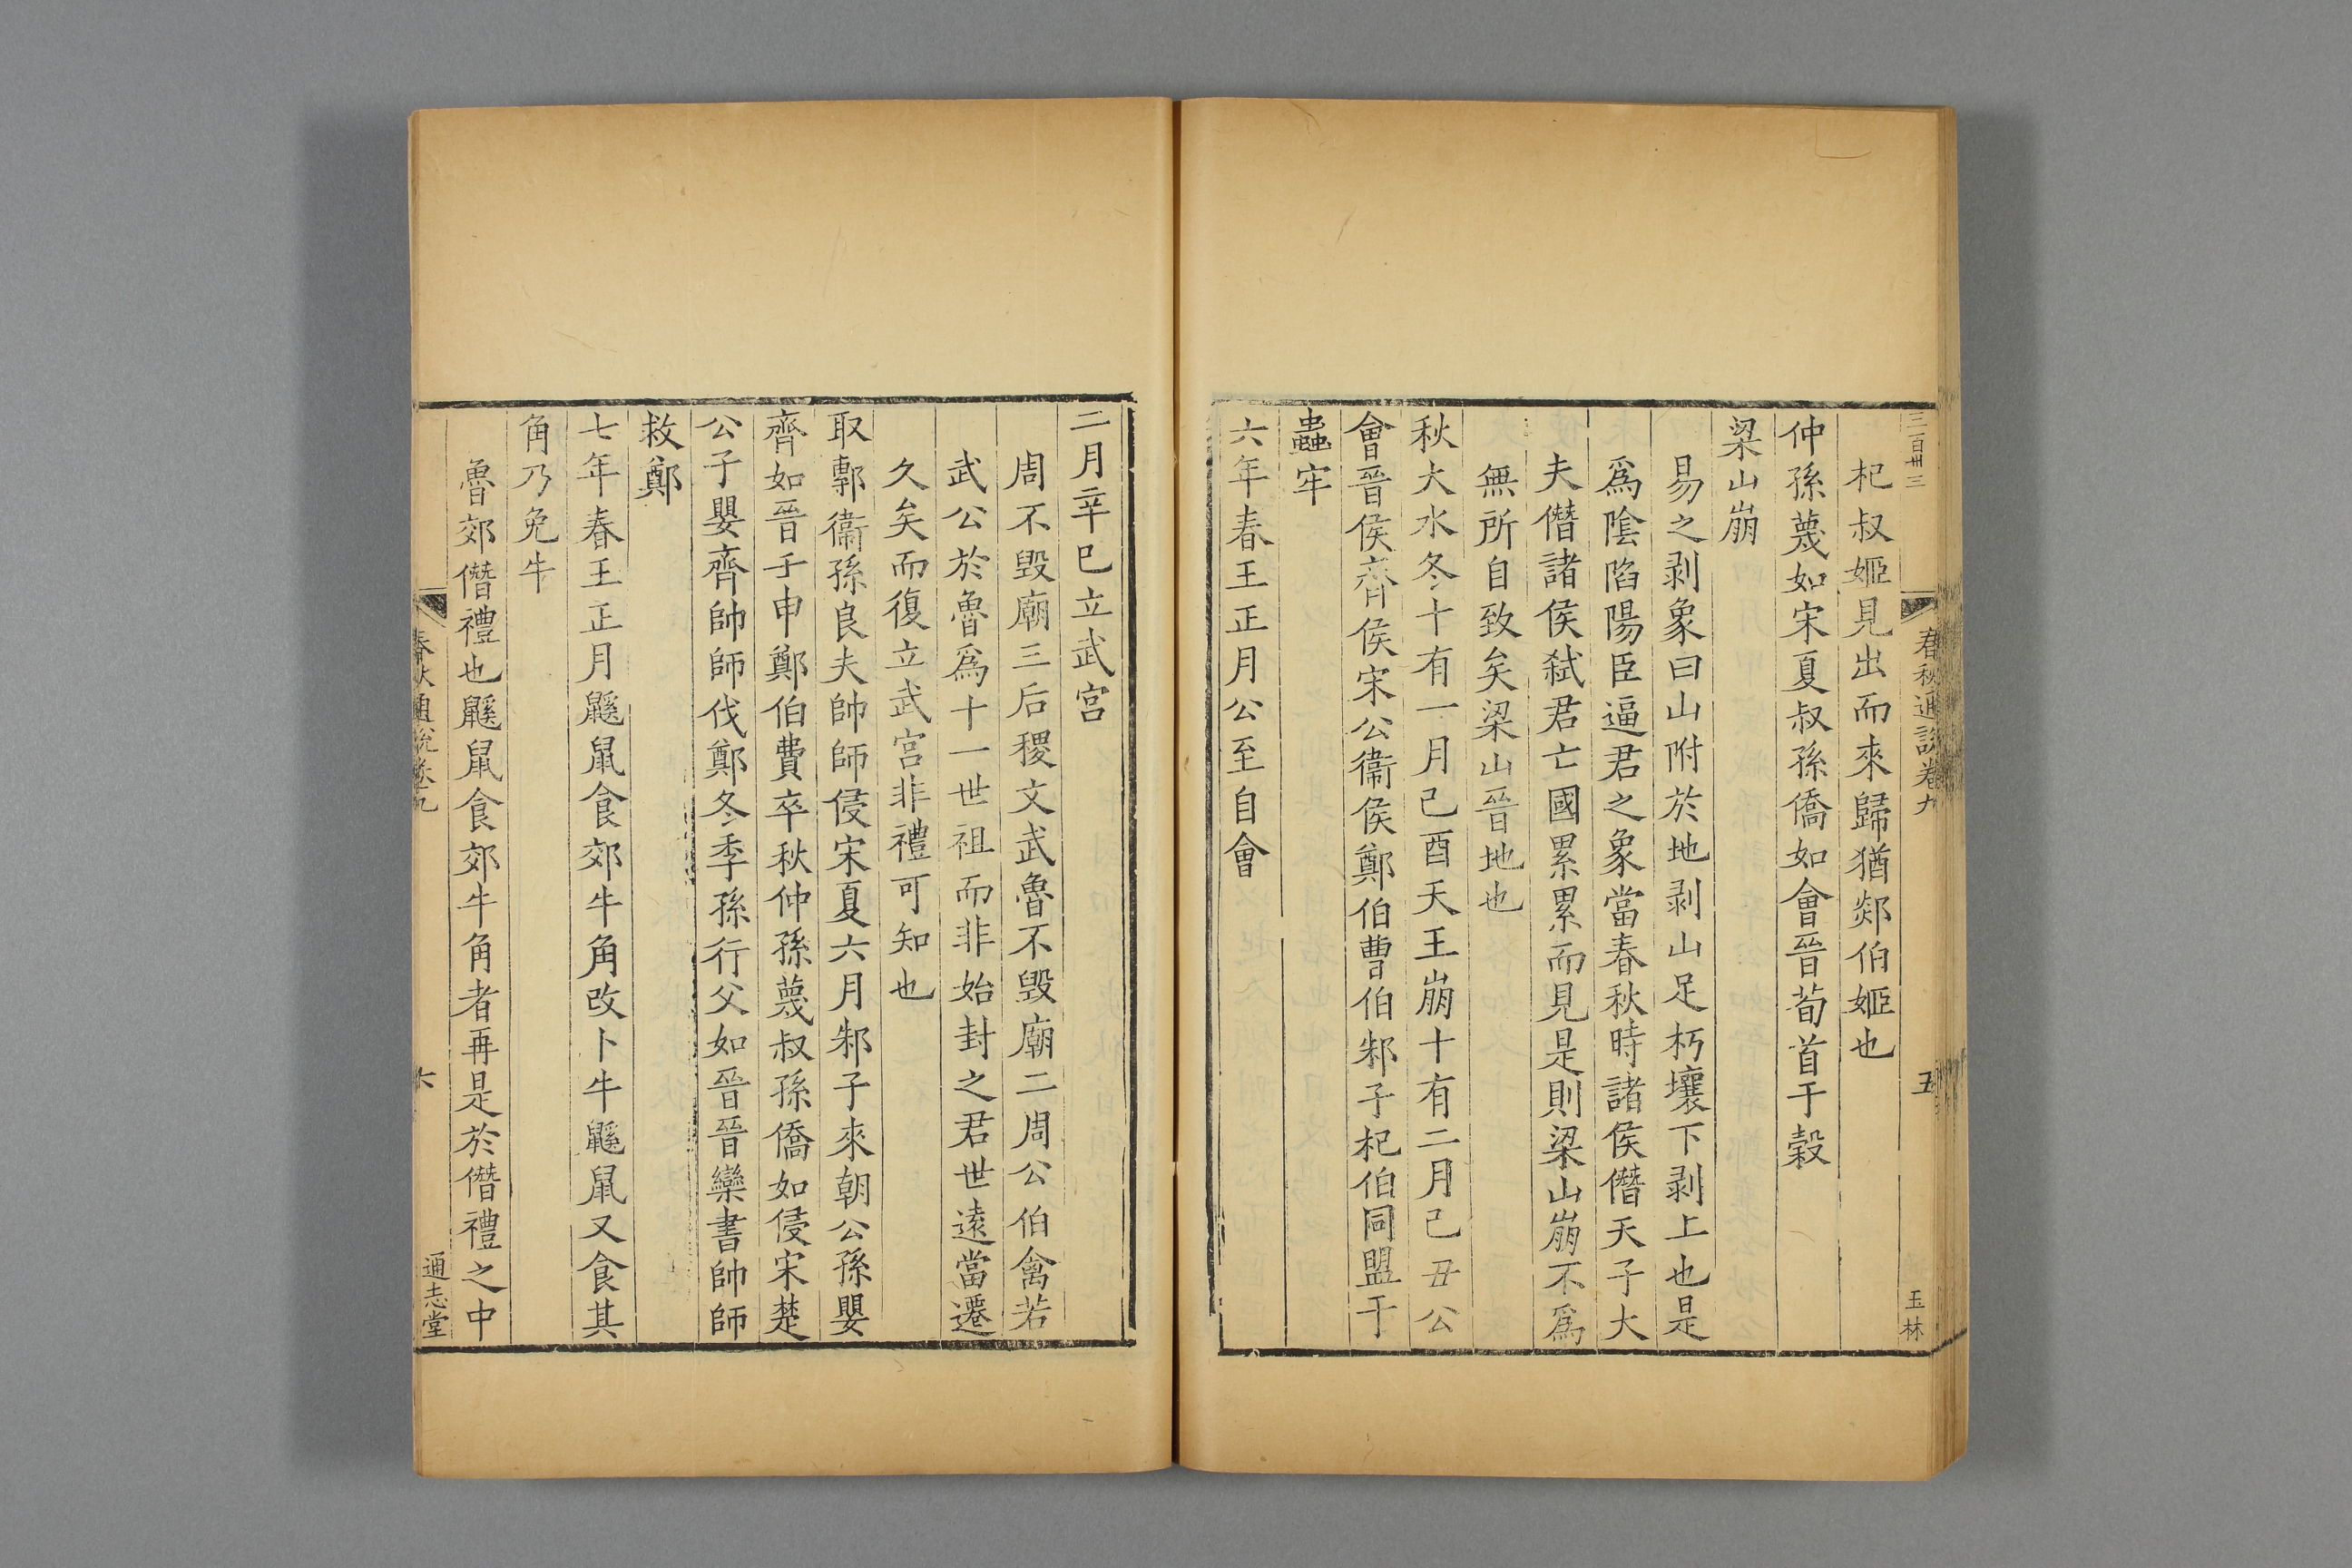 三百卅三
春秋通說卷九
五
玉林
杞叔姬見出而來歸猶郯伯姬也
仲孫蔑如宋夏叔孫僑如會晉荀首于穀
梁山崩
易之剥象曰山附於地剥山足朽壤下剥上也是
爲陰陷陽臣逼君之象當春秋時諸侯僭天子大
夫僭諸侯弑君亡國累累而見是則梁山崩不爲
無所自致矣梁山晉地也
秋大水冬十有一月己酉天王崩十有二月己丑公
會晉侯齊侯宋公衞侯鄭伯曹伯邾子杞伯同盟于
蟲牢
六年春王正月公至自會
二月辛巳立武宮
周不毀廟三后稷文武魯不毀廟二周公伯禽若
武公於魯爲十一世祖而非始封之君世遠當遷
久矣而復立武宮非禮可知也
取鄟衞孫良夫帥師侵宋夏六月邾子來朝公孫嬰
齊如晉壬申鄭伯費卒秋仲孫蔑叔孫僑如侵宋楚
公子嬰齊帥師伐鄭冬季孫行父如晉晉欒書帥師
救鄭
七年春王正月鼷鼠食郊牛角改卜牛鼷鼠又食其
角乃免牛
魯郊僭禮也鼷鼠食郊牛角者再是於僭禮之中
春秋通說卷九
六
通志堂